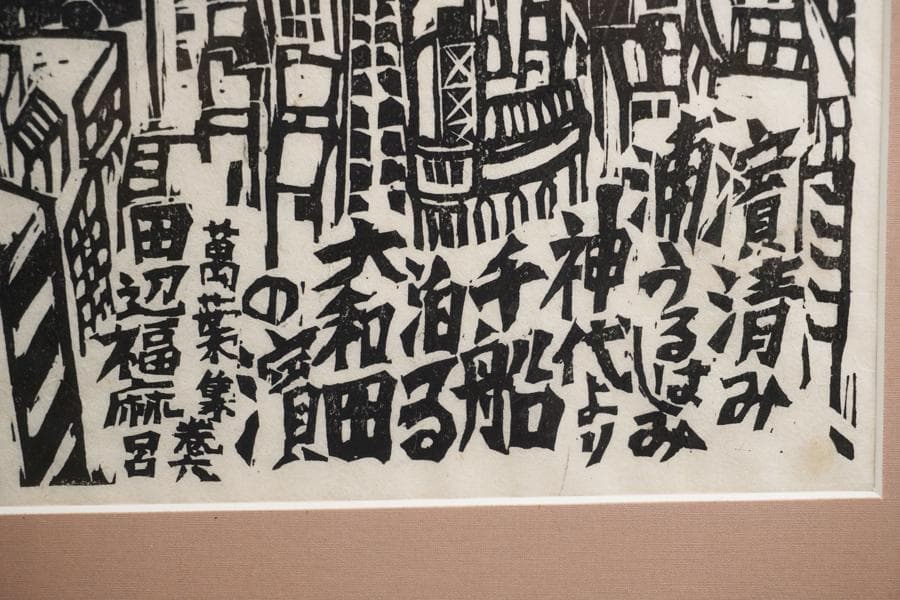 濱清み
浦うるはしみ
神代より
千船
泊る
大和田
の濱
萬葉集巻六
田辺福麻呂